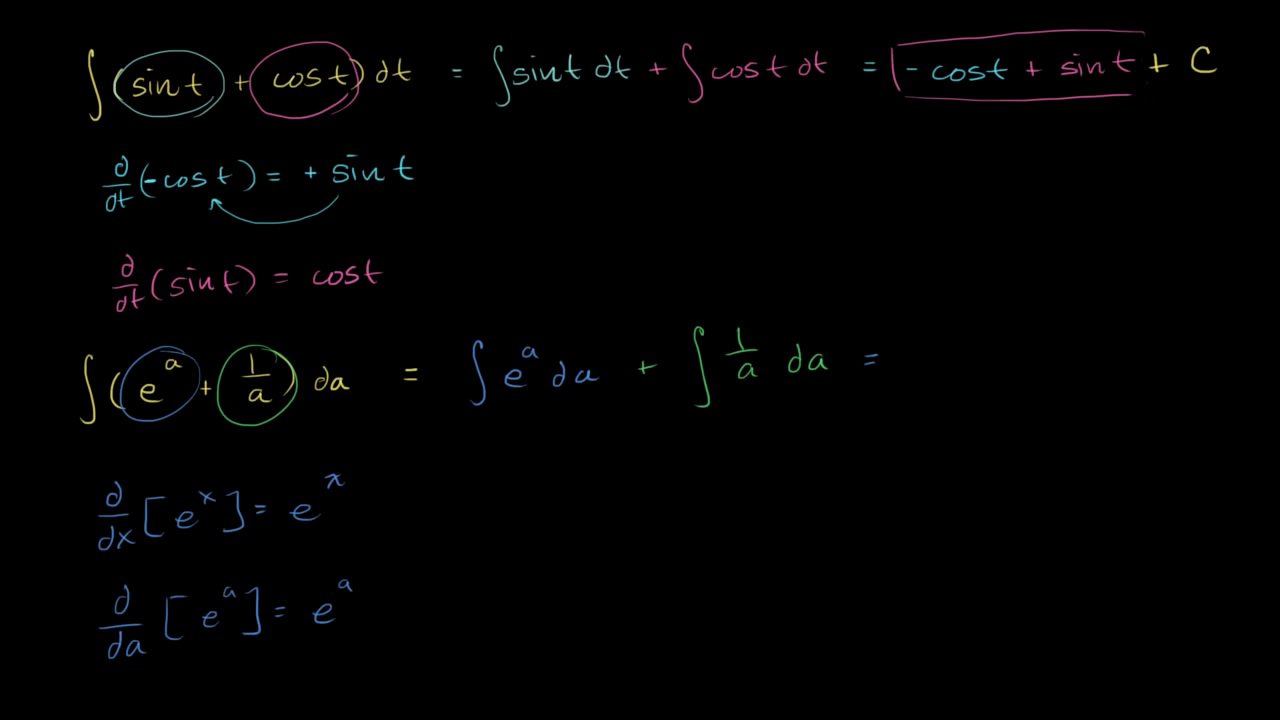 ∫(sin t + cos t) dt = ∫sin t dt + ∫cos t dt = - cos t + sin t + C
d/dt (-cos t) = + sin t
d/dt (sin t) = cos t
∫(e^a + 1/a) da = ∫e^a da + ∫ 1/a da =
d/dx [e^x] = e^x
d/da [e^a] = e^a